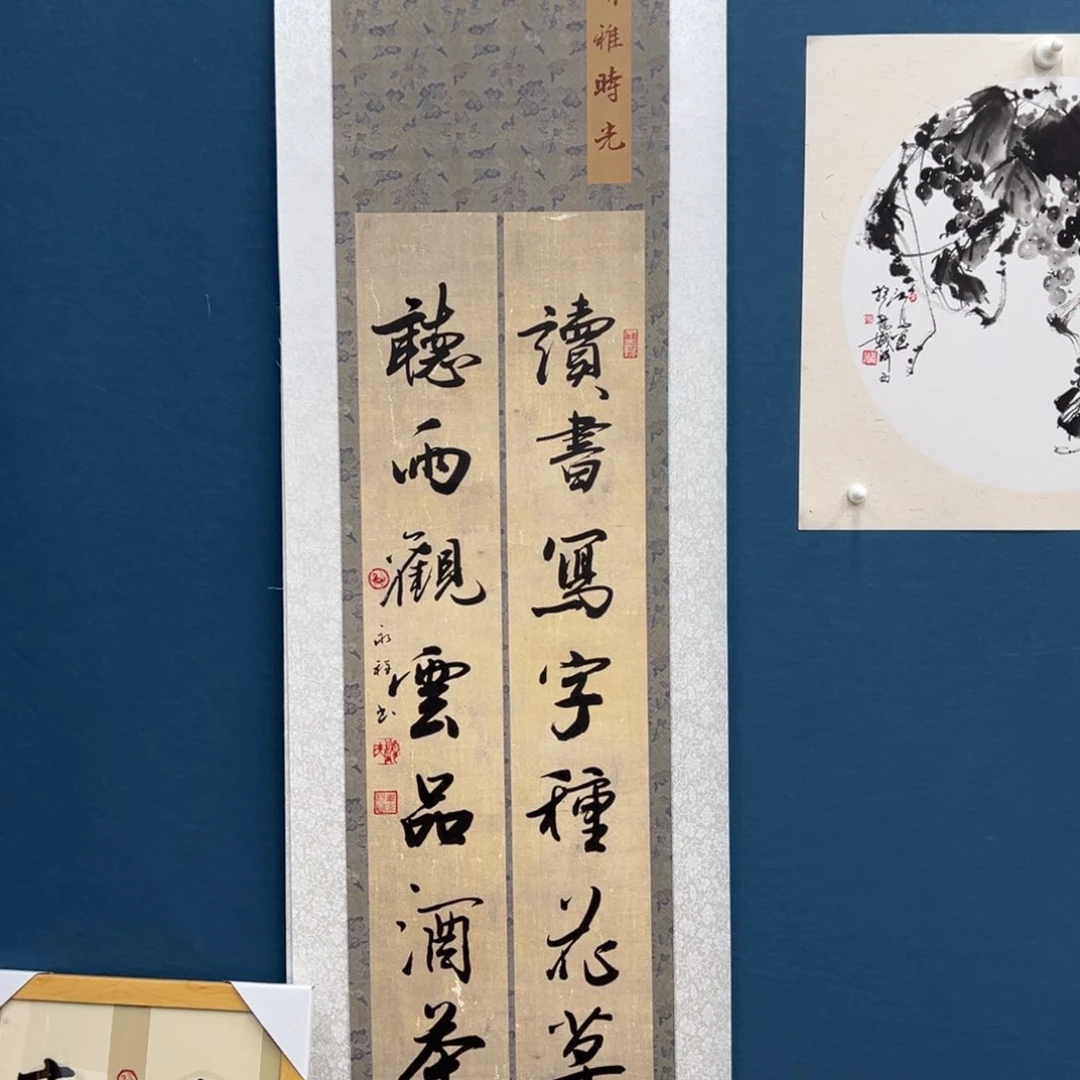 雅時光
讀書寫字種花草
聽雨觀雲品酒茶
永祥书